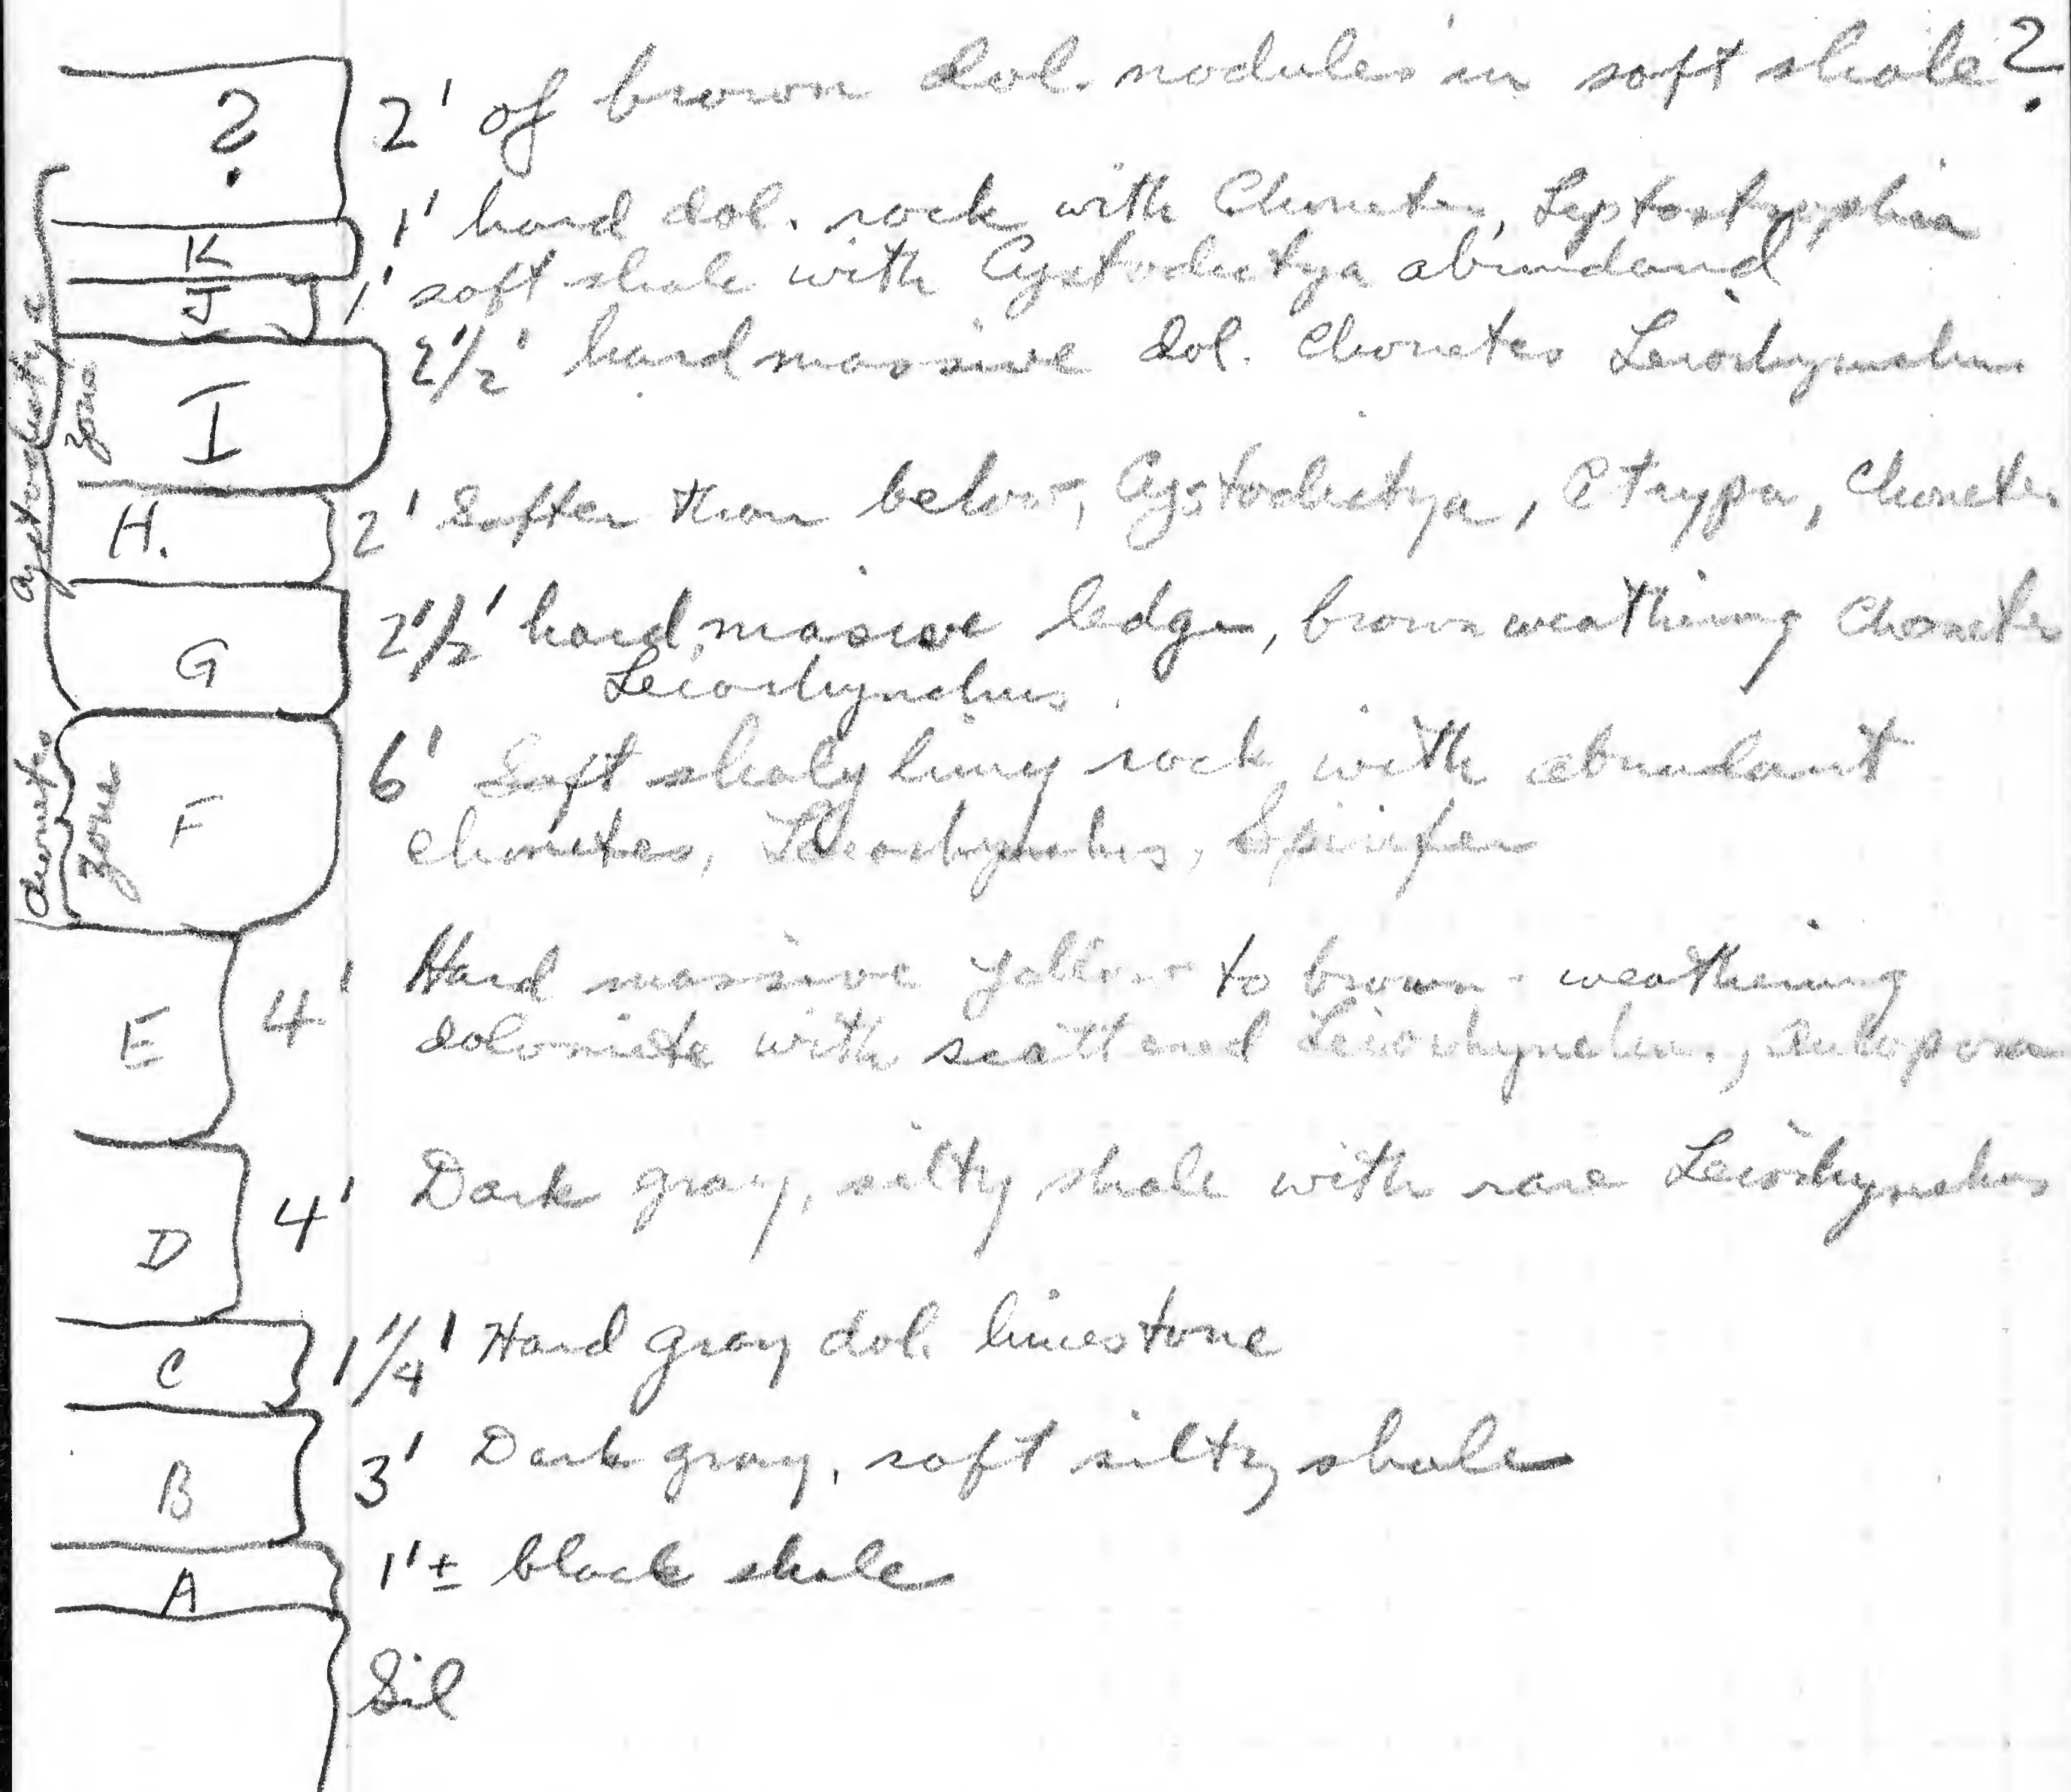 ? 2' of brown dol. nodules in soft shale?
K 1' hard dol. rock with Chonetes, Leptostrophia
J 1' soft shale with Cystodictya abundand
I 2 1/2' hard massive dol. Chonetes Leiorhynchus
H. 2' Softer than below, Cystodictya, Atrypa, Chonetes
G 2 1/2' hard, massive ledge, brown weathering Chonetes
Leiorhynchus
Cystodictya
zone
F 6' Soft shaly limy rock with abundant
chonetes, Leiorhynchus, Spirifer
Chonetes
zone
E 4' Hard massive yellow to brown - weathering
dolomite with scattered Leiorhynchus, Aulopora
D 4' Dark gray, silty shale with rare Leiorhynchus
C 1 1/4' Hard gray dol. limestone
B 3' Dark gray, soft silty shale
A 1' ± black shale
Sil